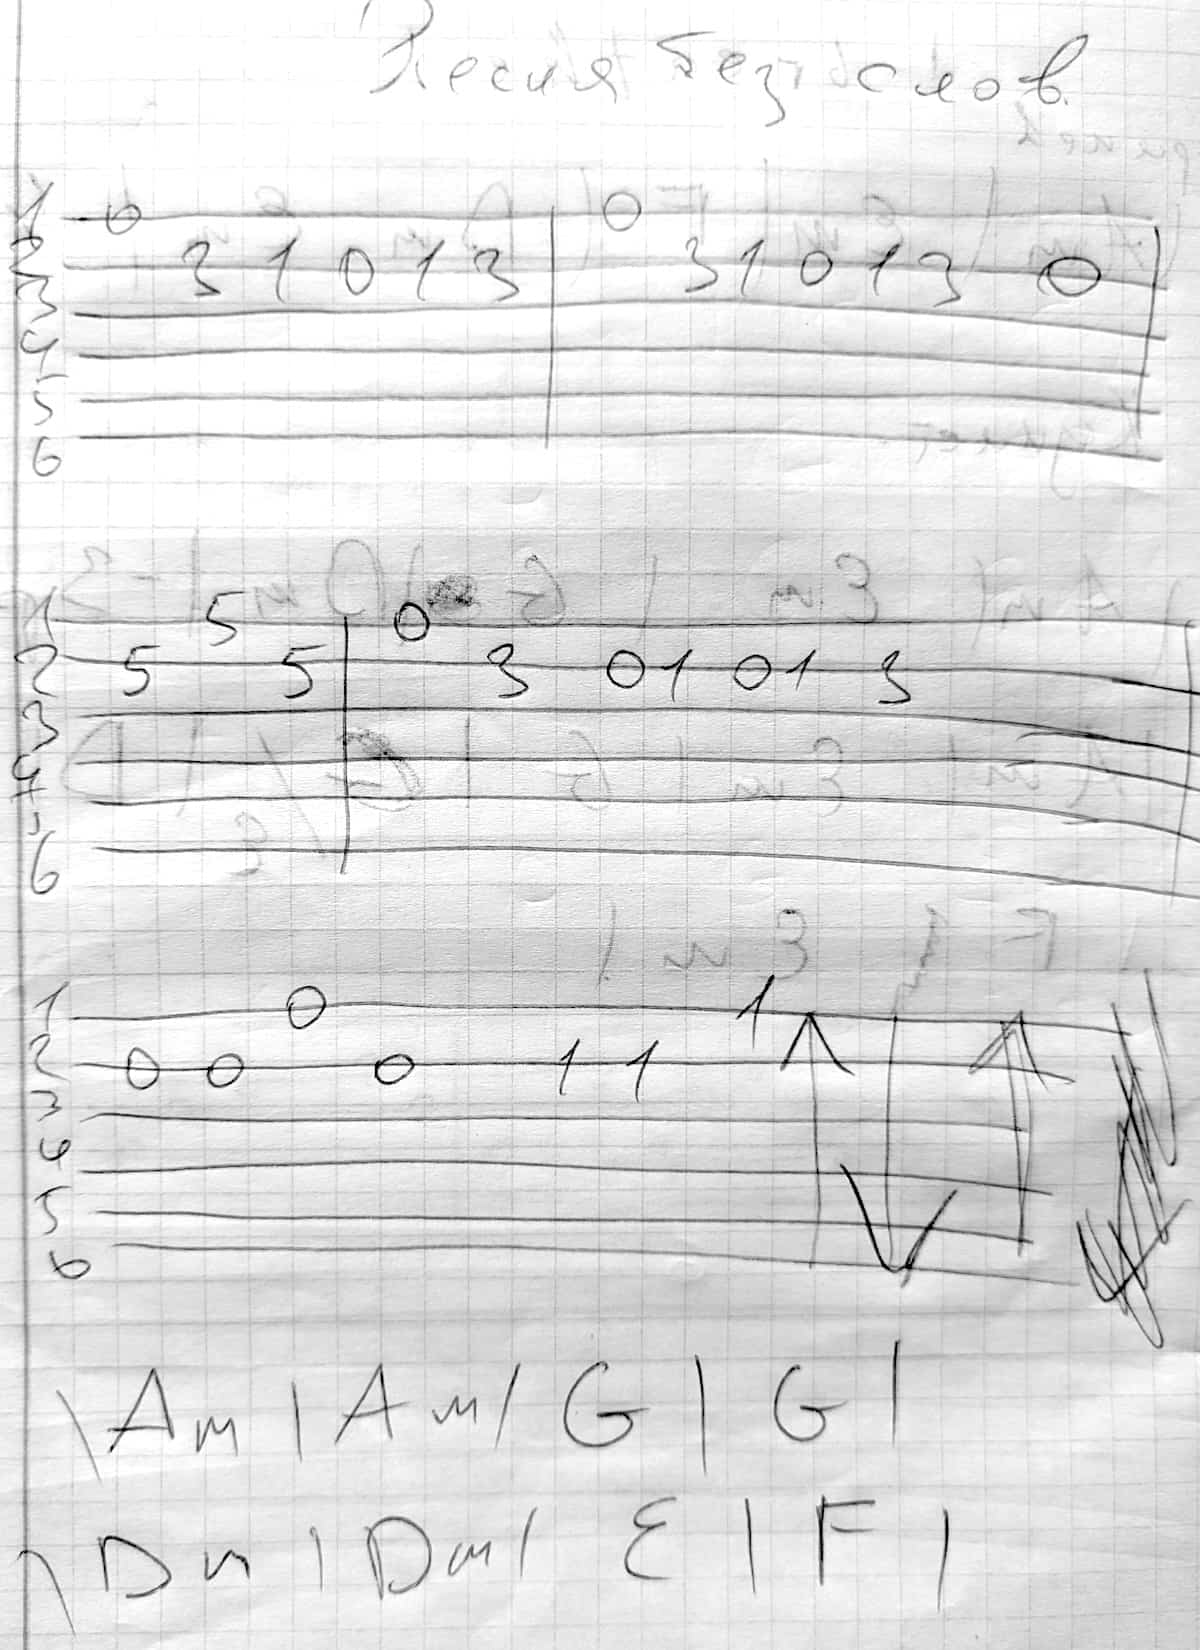 Песня без слов
1 0 0
2 3 1 0 1 3 3 1 0 1 3 0
3
4
5
6
1 5 0
2 5 5 3 0 1 0 1 3
3
4
5
6
1 0 1
2 0 0 0 1 1
3
4
5
6
\ Am | Am / G | G |
\ Dm | Dm | E | F |